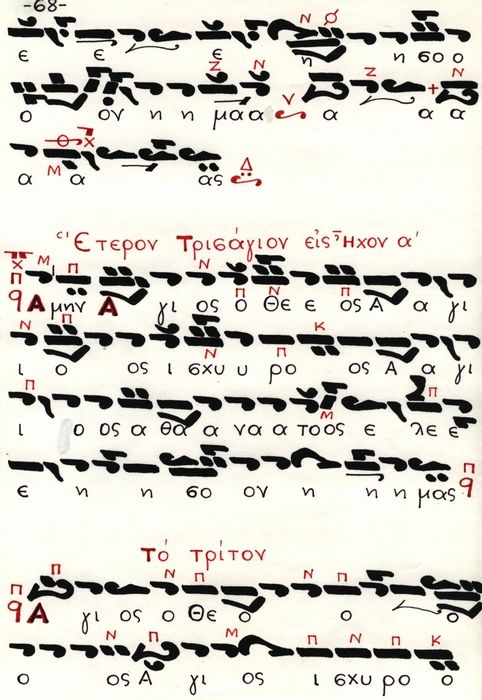 -68-
Ν
ε ε ε η η σο ο
Ζ Ν Ζ Ν
ο ον η η μα α ν α α α
Χ
α Μ α ας Δ
Ἕτερον Τρισάγιον εἰς Ἦχον α'
Χ Μ Π Ν Ν
Π
q Αμην Α γι ος ο Θε ε ος Α α γι
Π Π
Ν Π Κ
ι ο ος ι σχυ υ ρο ος Α α γι
Ν Π
Π Π
ι ο ος α θα α να α τοος ε λε ε
Μ
ε η η σο ον η η η μας Π q
Το τρίτον
Π Ν Π Ν Π
Π
q Α γι ος ο Θε ο ο ο
Ν Π Μ Π Ν Π Κ
ο ος Α γι ος ι σχυ ρο ο